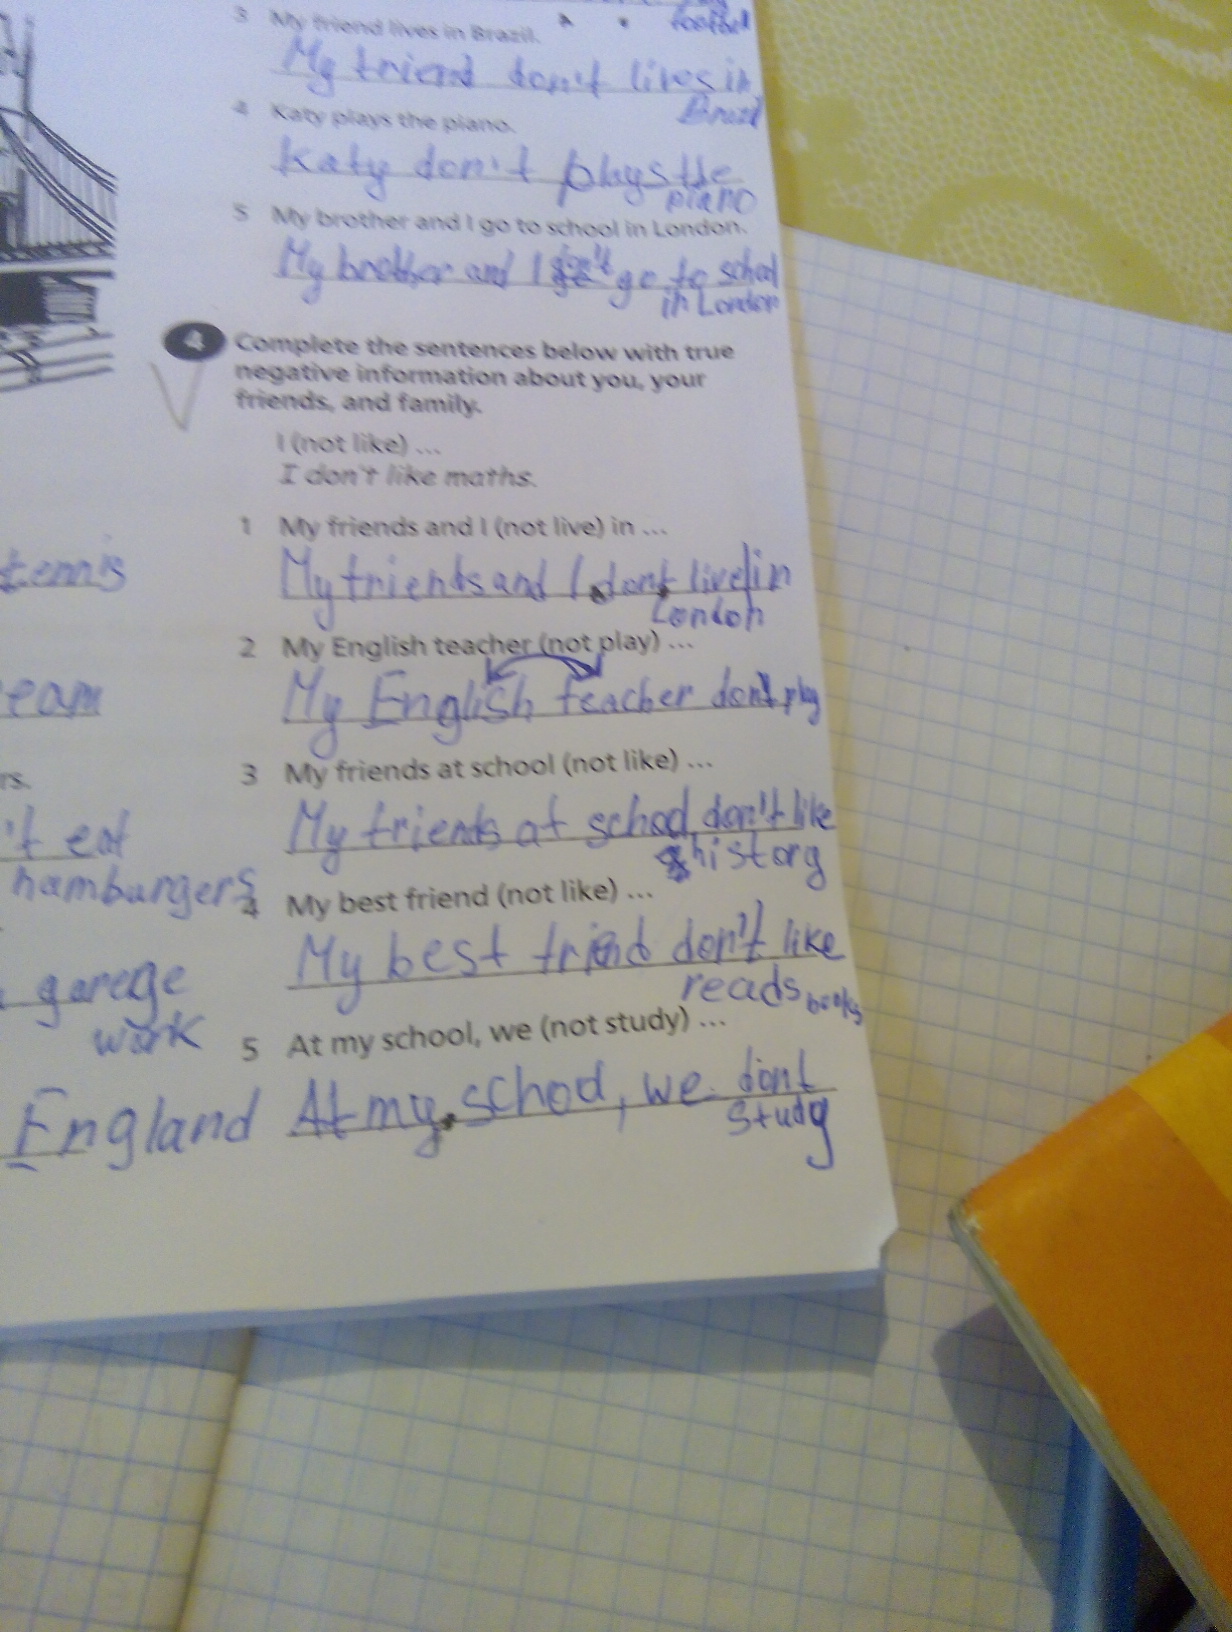 football
3 My friend lives in Brazil.
My friend don't lives in
Brazil
4 Katy plays the piano.
Katy don't plays the
piano
5 My brother and I go to school in London.
My brother and I don't go to school
in London
4 Complete the sentences below with true
negative information about you, your
friends, and family.
I (not like) ...
I don't like maths.
1 My friends and I (not live) in ...
My friends and I don't live in
London
2 My English teacher (not play) ...
My English teacher don't play
3 My friends at school (not like) ...
My friends at school don't like
history
4 My best friend (not like) ...
My best friend don't like
reads books
5 At my school, we (not study) ...
At my school, we don't
study
tennis
eam
rs.
't eat
hamburgers
garage
work
England